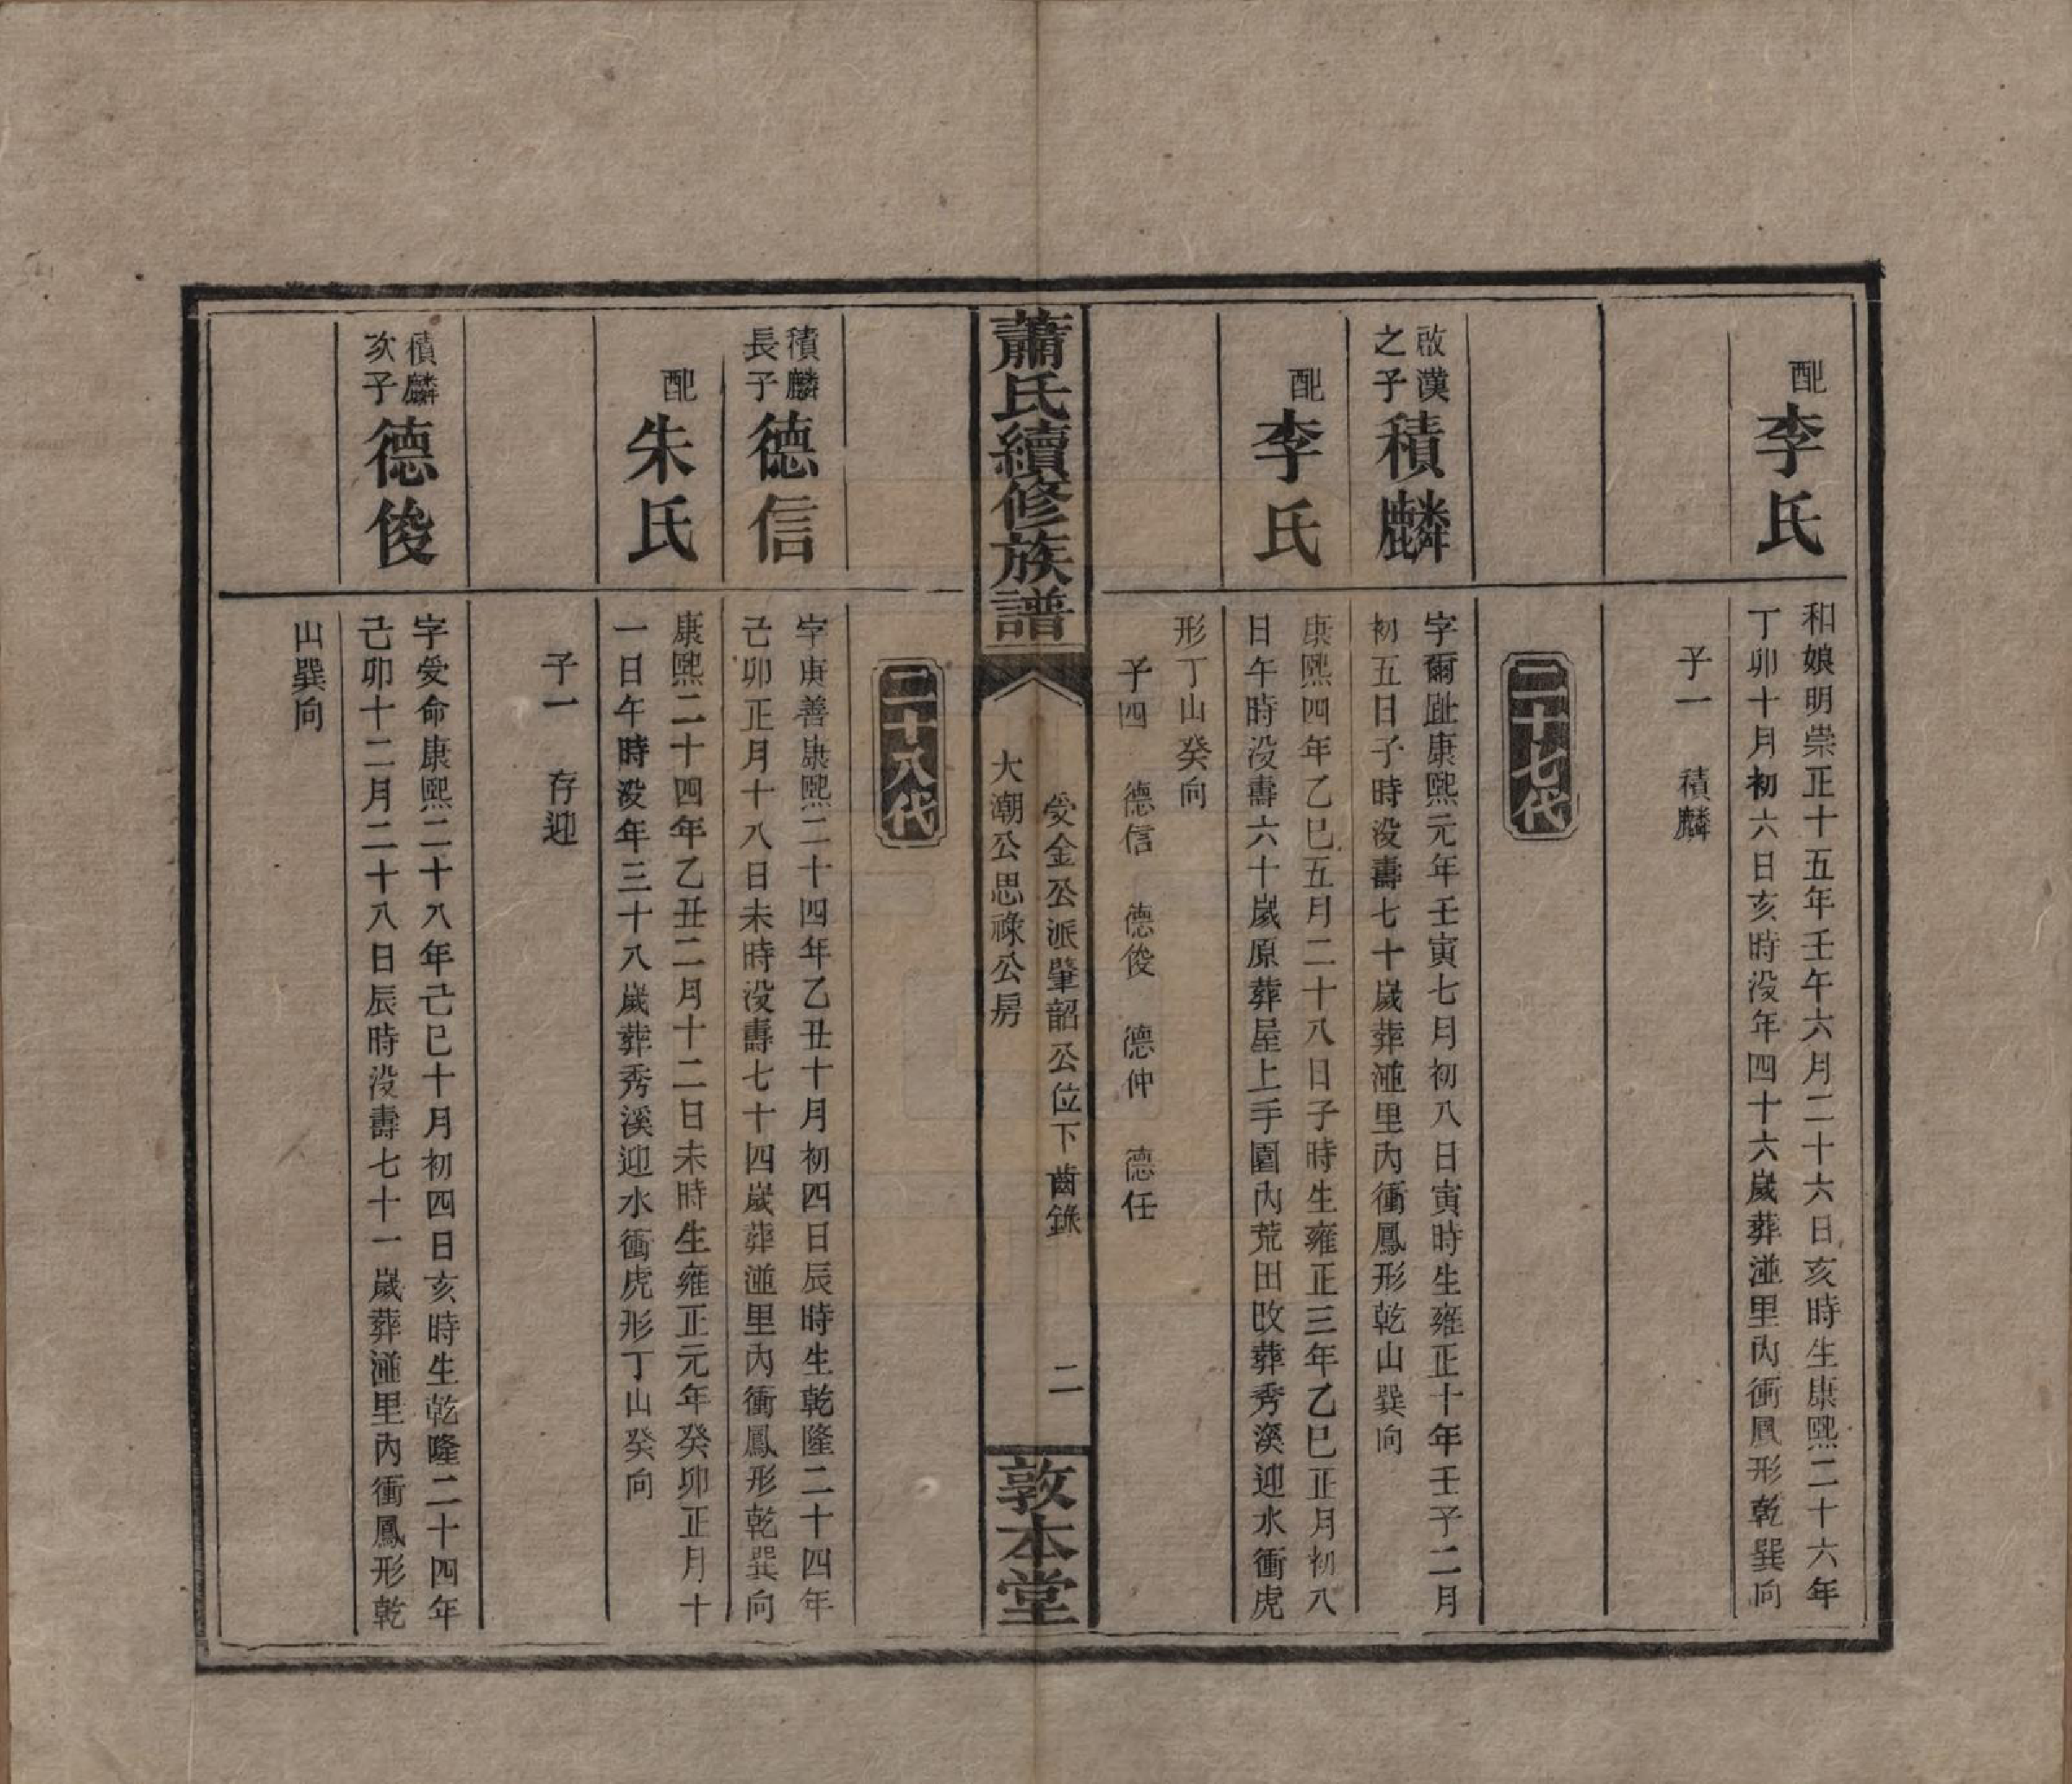 配李氏
和娘明崇正十五年壬午六月二十六日亥時生康熙二十六年
丁卯十月初六日亥時没年四十六嵗葬湴里内衝鳳形乾巽向
子一　積麟
二十七代
啟漢
之子
積麟
字爾趾康熙元年壬寅七月初八日寅時生雍正十年壬子二月
初五日子時没壽七十嵗葬湴里内衝鳳形乾山巽向
配李氏
康熙四年乙巳五月二十八日子時生雍正三年乙巳正月初八
日午時没壽六十嵗原葬屋上手園内荒田改葬秀溪迎水衝虎
形丁山癸向
子四　德信　德俊　德仲　德任
蕭氏續修族譜
受金公派肇韶公位下齒錄
大潮公思祿公房
二
敦本堂
二十八代
積麟
長子
德信
字庚善康熙二十四年乙丑十月初四日辰時生乾隆二十四年
己卯正月十八日未時没壽七十四嵗葬湴里内衝鳳形乾巽向
配朱氏
康熙二十四年乙丑二月十二日未時生雍正元年癸卯正月十
一日午時没年三十八嵗葬秀溪迎水衝虎形丁山癸向
子一　存迎
積麟
次子
德俊
字受命康熙二十八年己巳十月初四日亥時生乾隆二十四年
己卯十二月二十八日辰時没壽七十一嵗葬湴里内衝鳳形乾
山巽向